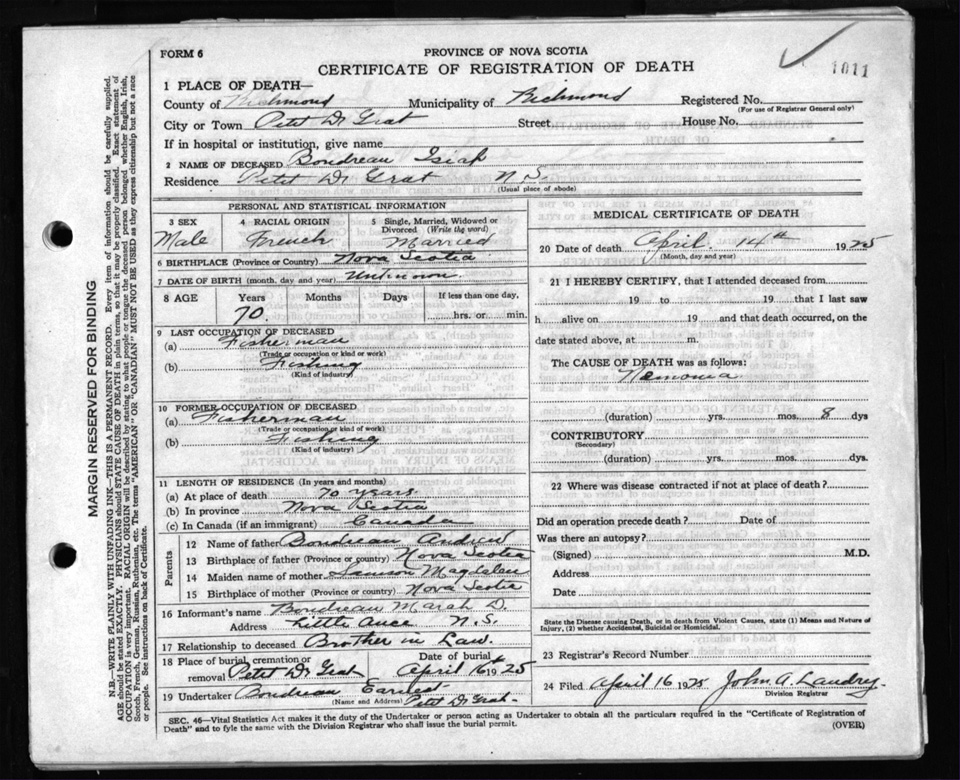 FORM 6
PROVINCE OF NOVA SCOTIA
CERTIFICATE OF REGISTRATION OF DEATH
1011
1 PLACE OF DEATH—
County of Richmond Municipality of Richmond Registered No.
(For use of Registrar General only)
City or Town Petit D Grat Street House No.
If in hospital or institution, give name
2 NAME OF DECEASED Boudreau Isiah
Residence Petit D Grat N.S.
(Usual place of abode)
PERSONAL AND STATISTICAL INFORMATION
3 SEX 4 RACIAL ORIGIN 5 Single, Married, Widowed or Divorced (Write the word)
Male French Married
6 BIRTHPLACE (Province or Country) Nova Scotia
7 DATE OF BIRTH (month, day and year) Unknown
8 AGE Years Months Days If less than one day,
70 hrs. or min.
9 LAST OCCUPATION OF DECEASED
(a) Fisherman
(Trade or occupation or kind or work)
(b) Fishing
(Kind of industry)
10 FORMER OCCUPATION OF DECEASED
(a) Fisherman
(Trade or occupation or kind of work)
(b) Fishing
(Kind of industry)
11 LENGTH OF RESIDENCE (In years and months)
(a) At place of death 70 years
(b) In province Nova Scotia
(c) In Canada (if an immigrant) Canada
Parents
12 Name of father Boudreau Andrew
13 Birthplace of father (Province or country) Nova Scotia
14 Maiden name of mother Magdalen
15 Birthplace of mother (Province or country) Nova Scotia
16 Informant's name Boudreau D.
Address Little Ance N.S.
17 Relationship to deceased Brother in Law.
18 Place of burial, cremation or removal Petit D Grat Date of burial April 16th 1925
19 Undertaker Boudreau Earnest
(Name and Address) Petit D Grat.
MEDICAL CERTIFICATE OF DEATH
20 Date of death April 14th 1925
(Month, day and year)
21 I HEREBY CERTIFY, that I attended deceased from
19 to 19 that I last saw
h alive on 19 and that death occurred, on
date stated above, at m.
The CAUSE OF DEATH was as follows:
Nemonia
(duration) yrs. mos. 8 dys
CONTRIBUTORY
(Secondary)
(duration) yrs. mos. dys
22 Where was disease contracted if not at place of death?
Did an operation precede death? Date of
Was there an autopsy?
(Signed) M.D.
Address
Date
State the Disease causing Death, or in death from Violent Causes, state (1) Means and Nature of
Injury, (2) whether Accidental, Suicidal or Homicidal.
23 Registrar's Record Number
24 Filed April 16 1925 John A. Landry
Division Registrar
SEC. 46—Vital Statistics Act makes it the duty of the Undertaker or person acting as Undertaker to obtain all the particulars required in the "Certificate of Registration of
Death" and to fyle the same with the Division Registrar who shall issue the burial permit. (OVER)
MARGIN RESERVED FOR BINDING
N.B.—WRITE PLAINLY WITH UNFADING INK—THIS IS A PERMANENT RECORD. Every item of information should be carefully supplied.
AGE should be stated EXACTLY. PHYSICIANS should STATE CAUSE OF DEATH in plain terms, so that it may be properly classified. Exact statement of
OCCUPATION is very important. RACIAL ORIGIN will be described by stating to what people or tongue the deceased person belonged whether English, Irish,
Scotch, French, German, Russian, Ruthenian, etc. The terms "AMERICAN" OR "CANADIAN" MUST NOT BE USED as they express citizenship but not a race
or people. See instructions on back of Certificate.